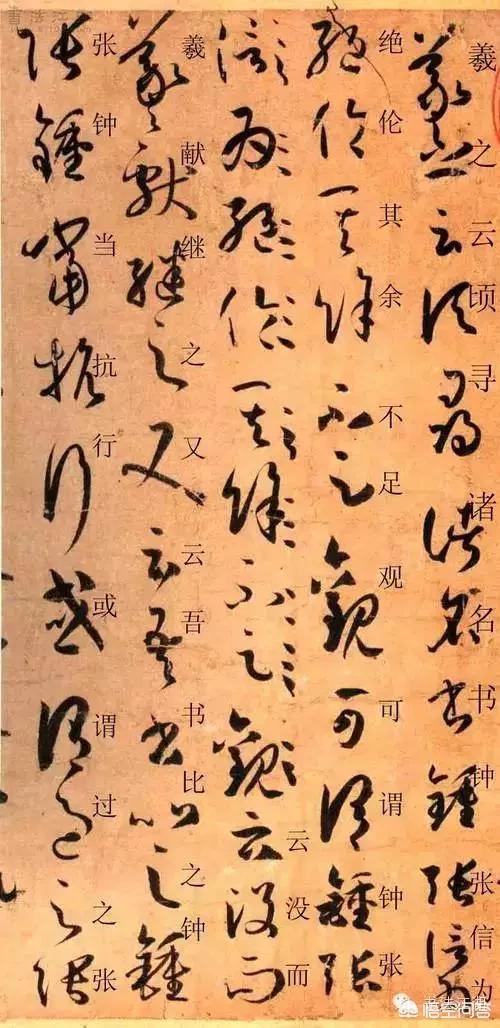 羲之云顷寻诸名书钟张信为
绝伦其余不足观可谓钟张
云没而
羲献继之又云吾书比之钟
张钟当抗行或谓过之张
悟空问答